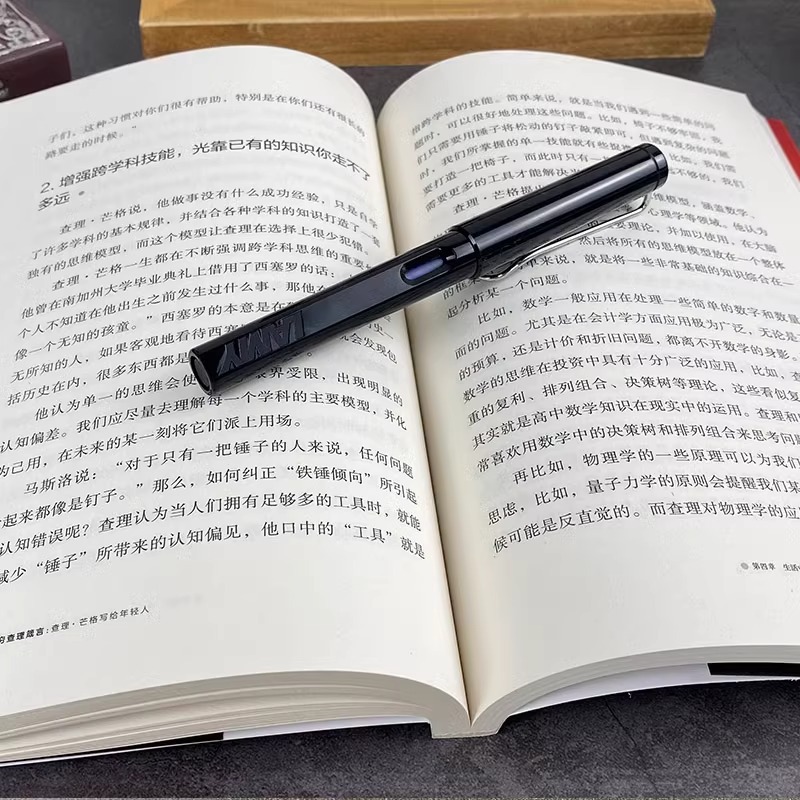 子们，这种习惯对你们很有帮助，特别是在你们还有很长的
路要走的时候。”
2. 增强跨学科技能，光靠已有的知识你走不了
多远
查理·芒格说，他做事没有什么成功经验，只是自学
了许多学科的基本规律，并结合各种学科的知识打造了一套
独有的思维模型，而这个模型让查理在选择上很少犯错。
查理·芒格一生都在不断强调跨学科思维的重要
他曾在南加州大学毕业典礼上借用了西塞罗的话：
个人不知道在他出生之前发生过什么事，那他
像一个无知的孩童。”西塞罗的本意是在
无所知的人，如果客观地看待西塞 就会发现包
括历史在内，很多东西都是
他认为单一的思维会使 眼界受限，出现明显的
认知偏差。我们应尽量去理解每一个学科的主要模型，并化
为己用，在未来的某一刻将它们派上用场。
马斯洛说：“对于只有一把锤子的人来说，任何问题
起来都像是钉子。”那么，如何纠正“铁锤倾向”所引起
认知错误呢？查理认为当人们拥有足够多的工具时，就能
减少“锤子”所带来的认知偏见，他口中的“工具”就是
的查理箴言：查理·芒格写给年轻人
跨学科的技能。简单来说，就是当我们遇到一些简单的问
题时，可以很好地处理这些问题。比如，椅子不够牢固，我
们只需要用锤子将松动的钉子敲紧即可，但遇到复杂的问题
时，我们所掌握的单一技能就有些捉 比如，我们需
要打造一把椅子，而此时只有一 不够的，我们
需要更多的工具才能解决
查理·芒格提 维模型，涵盖数学、
心理学等领域。他认为
要理论，并加以使用，在大脑
然后将所有的思维模型放在一个整体
的框 单来说，就是将一些非常基础的知识综合在一
起分析某一个问题。
比如，数学一般应用在处理一些简单的数字和数量
面的问题。尤其是在会计学方面应用极为广泛，无论是
的预算，还是计价和折旧问题，都离不开数学的身影。
数学的思维在投资中具有十分广泛的应用，比如，查
重的复利、排列组合、决策树等理论，这些看似复
其实就是高中数学知识在现实中的运用。查理和
常喜欢用数学中的决策树和排列组合来思考问题
再比如，物理学的一些原理可以为我们
思虑，比如，量子力学的原则会提醒我们某
候可能是反直觉的。而查理对物理学的应
第四章 生活
LAMY